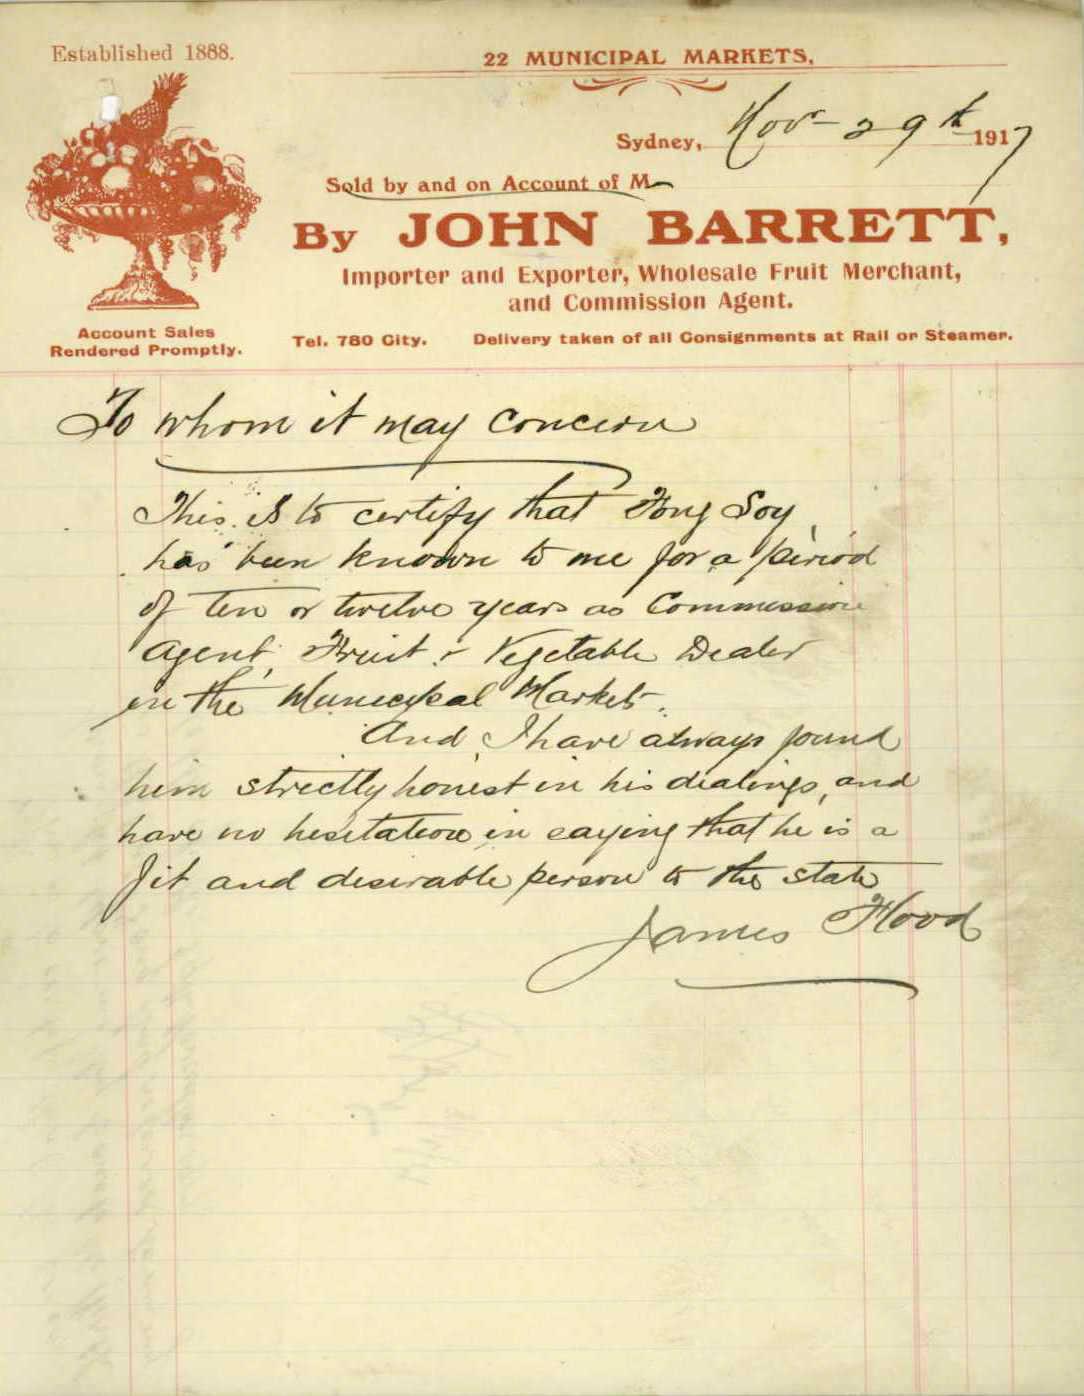 Established 1888.
22 MUNICIPAL MARKETS,
Sydney, Nov 29th 1917
Sold by and on Account of M
By JOHN BARRETT,
Importer and Exporter, Wholesale Fruit Merchant,
and Commission Agent.
Account Sales
Rendered Promptly.
Tel. 780 City. Delivery taken of all Consignments at Rail or Steamer.
To whom it may concern
This is to certify that Fong Soy,
has been known to me for a period
of ten or twelve years as Commission
Agent, Fruit & Vegetable Dealer
in the Municipal Markets.
And I have always found
him strictly honest in his dealings, and
have no hesitation in saying that he is a
fit and desirable person to the state
James Flood